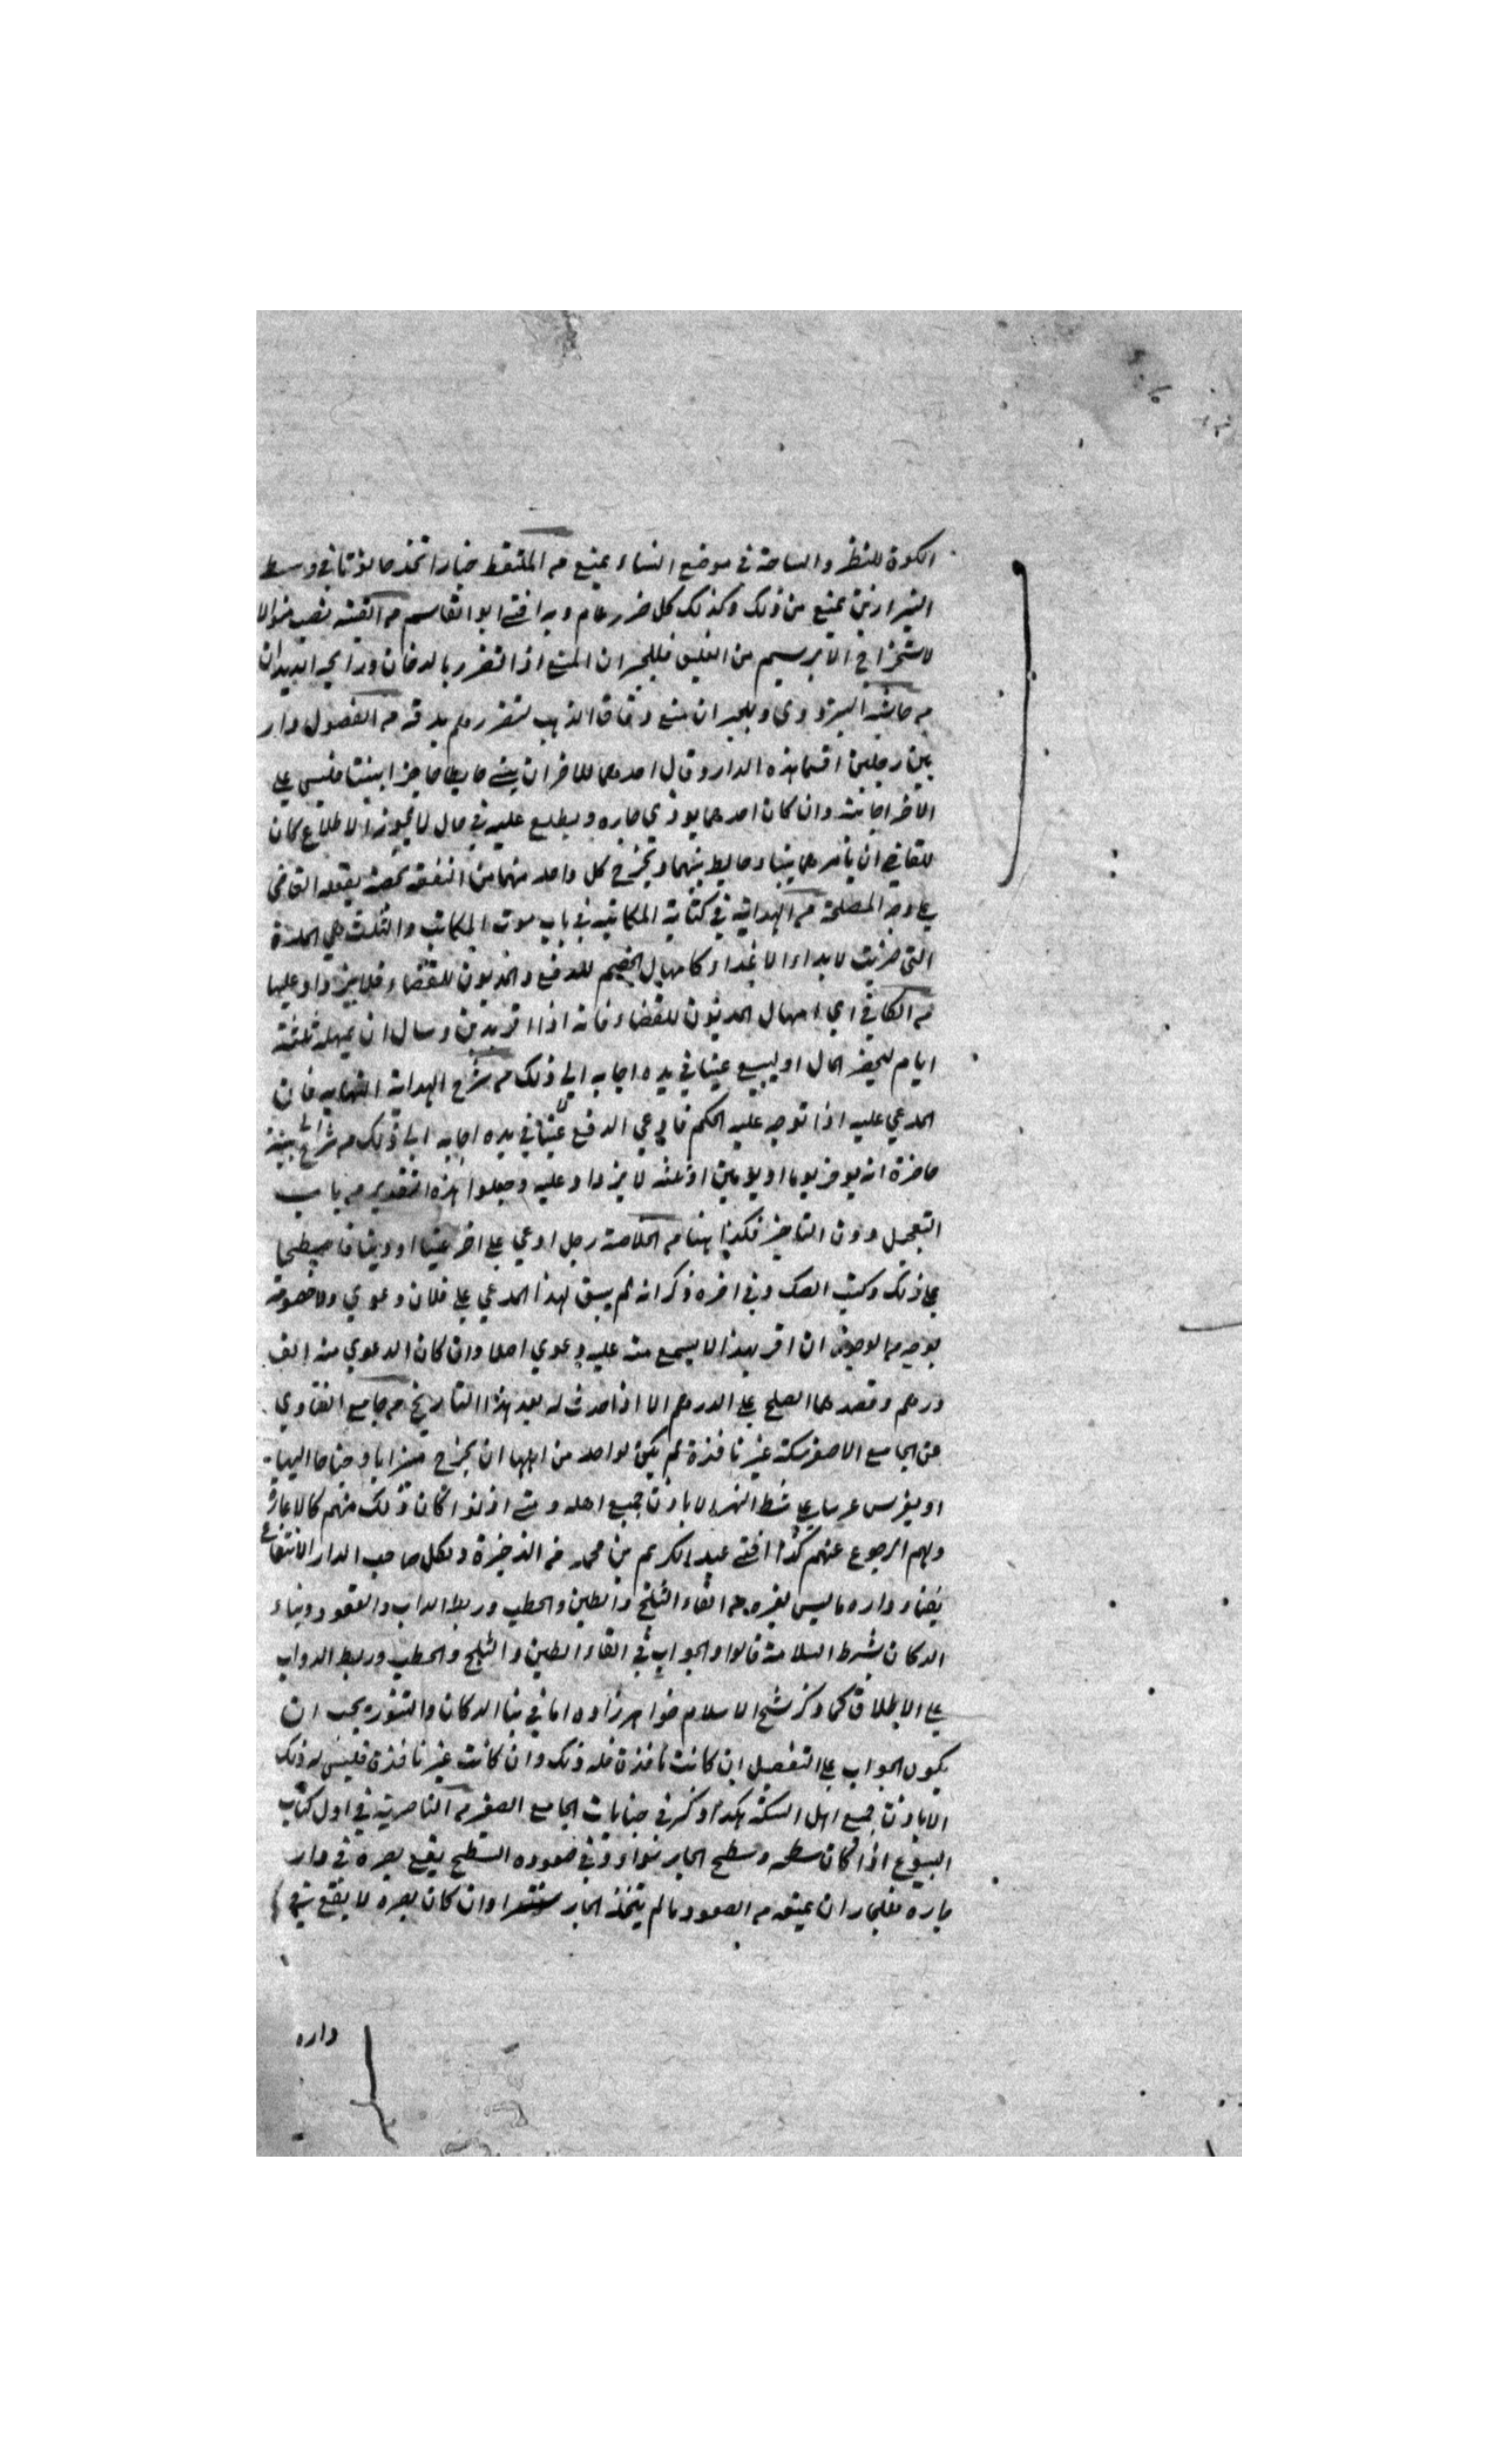 الكوة للنظر والساحة في موضع النساء يمنع من الملتقط خبازا اتخذ حانوتا في وسط
البزازين يمنع من ذلك وكذلك كل ضرر عام وبه افتى ابو القاسم من القنية نصب منوالا
لاستخراج الابريسم من الفليق فللجيران المنع اذا التضرر بالدخان ورايحة الديدان
من حاشية البزدوي وللجيران منع دقاق الذهب لتضررهم بدقه من الفصول دار
بين رجلين اقتسما هذه الدار وقال احدهما للاخر ان يبني حايطا حاجزا بيننا فليس على
الاخر اجابته وان كان احدهما يوذي جاره ويطلع عليه في حال لا يجوز الاطلاع كان
للقاضي ان يامرهما ببناء حايط بينهما ويخرج كل واحد منهما من النفقة بحصته يفعله القاضي
على وجه المصلحة من الهداية في كتابة المكاتبة في باب موت المكاتب والثلث هي المدة
التي ضربت لابداء الاعذار كامهال الخصم للدفع والمديون للقضاء فلا يزداد عليها
من الكافي اي امهال المديون للقضاء فانه اذا اقر بدين وسال ان يمهله ثلثة
ايام ليحضر المال او ليبيع عينا في يده اجابه الى ذلك من شرح الهداية النهاية فان
المدعي عليه اذا توجه عليه الحكم فادعي الدفع عينا في يده اجابه الى ذلك من شراح بينة
حاضرة انه يوخر يوما او يومين او ثلثه لا يزداد عليه وجعلوا هذه التقدير من باب
التعجيل دون التاخير فكذا هنا من الخلاصة رجل ادعي على اخر عينا او دينا فاصطلحا
على ذلك وكتب الصك وفي اخره ذكر انه لم يبق لهذا المدعي على فلان دعوي ولا خصومة
بوجه من الوجوه ان اقر بهذا لا يسمع منه عليه دعوي اصلا وان كان الدعوي منه الف
درهم وقصدهما الصلح على الدرهم الا اذا حدث له بعد هذا التاريخ من جامع الفتاوي
عن الجامع الاصغر سكة غير نافذة لم يكن لواحد من اهلها ان يخرج ميزابا و جناحا اليها
او يغرس غرسا على شط النهر الا باذن جميع اهله ومتى اذنوا كان ذلك منهم كالاعارة
ولهم الرجوع عنهم كذا افتى عبد الكريم بن محمد من الذخيرة ولكل صاحب الدار الانتفاع
بفناء داره ما ليس لغيره من القاء الثلج والطين والحطب وربط الداب والقعود وبناء
الدكان بشرط السلامة قالوا والجواب في القاء الطين والثلج والحطب وربط الدواب
على الاطلاق كما ذكر شيخ الاسلام خواهرزاده اما في بنا الدكان والتنور يجب ان
يكون الجواب على التفصيل ان كانت نافذة فله ذلك وان كانت غير نافذة فليس له ذلك
الا باذن جميع اهل السكة هكذا ذكر في جنايات الجامع الصغير من الناصرية في اول كتاب
البيوع اذا كان سطحه وسطح الجار سواء وفي صعوده السطح يقع بصره في دار
جاره فللجار ان يمنعه من الصعود ما لم يتخذ الجار سترا وان كان بصره لا يقع في
داره